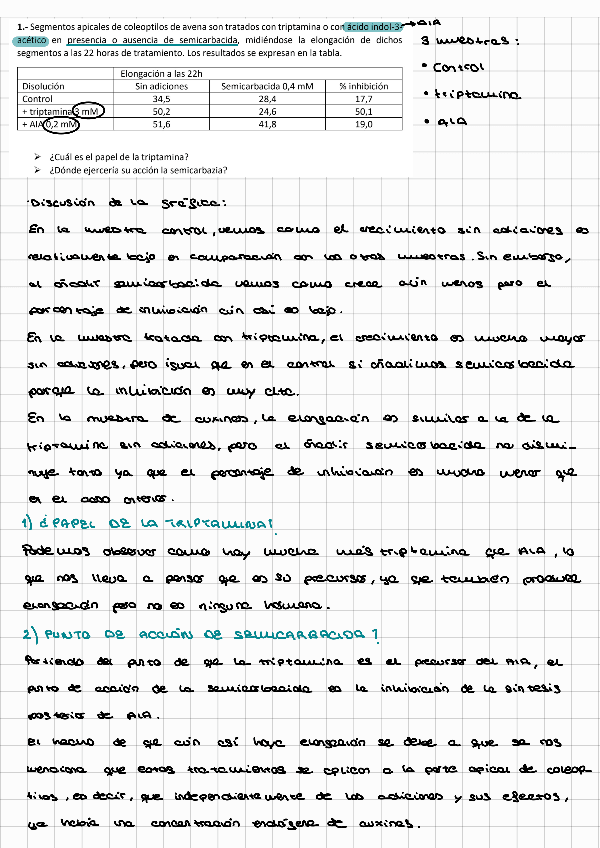 1.- Segmentos apicales de coleoptilos de avena son tratados con triptamina o con ácido indol-3- → AIA
acético en presencia o ausencia de semicarbacida, midiéndose la elongación de dichos
segmentos a las 22 horas de tratamiento. Los resultados se expresan en la tabla.
3 muestras:
• Control
• triptamina
• AIA
Elongación a las 22h
Disolución Sin adiciones Semicarbacida 0,4 mM % inhibición
Control 34,5 28,4 17,7
+ triptamina 3 mM 50,2 24,6 50,1
+ AIA 0,2 mM 51,6 41,8 19,0
➢ ¿Cuál es el papel de la triptamina?
➢ ¿Dónde ejercería su acción la semicarbazia?
·Discusión de la gráfica:
En la muestra control, vemos como el crecimiento sin adiciones es
relativamente bajo en comparación con las otras muestras. Sin embargo,
al añadir semicarbacida vemos como crece aún menos pero el
porcentaje de inhibición aún así es bajo.
En la muestra tratada con triptamina, el crecimiento es mucho mayor
sin adiciones, pero igual que en el control si añadimos semicarbacida
porque la inhibición es muy alta.
En la muestra de auxinas, la elongación es similar a la de la
triptamina sin adiciones, pero al añadir semicarbacida no dismi-
nuye tanto ya que el porcentaje de inhibición es mucho menor que
en el caso anterior.
1) ¿PAPEL DE LA TRIPTAMINA?
Podemos observar como hay mucha más triptamina que AIA, lo
que nos lleva a pensar que es su precursor, ya que también produce
elongación pero no es ninguna hormona.
2) PUNTO DE ACCIÓN DE SEMICARBACIDA?
Partiendo del punto de que la triptamina es el precursor del AIA, el
punto de acción de la semicarbacida es la inhibición de la síntesis
posterior de AIA.
El hecho de que aún así haya elongación se debe a que se nos
menciona que estos tratamientos se aplican a la parte apical de coleop-
tilos, es decir, que independientemente de las adiciones y sus efectos,
ya había una concentración endógena de auxinas.